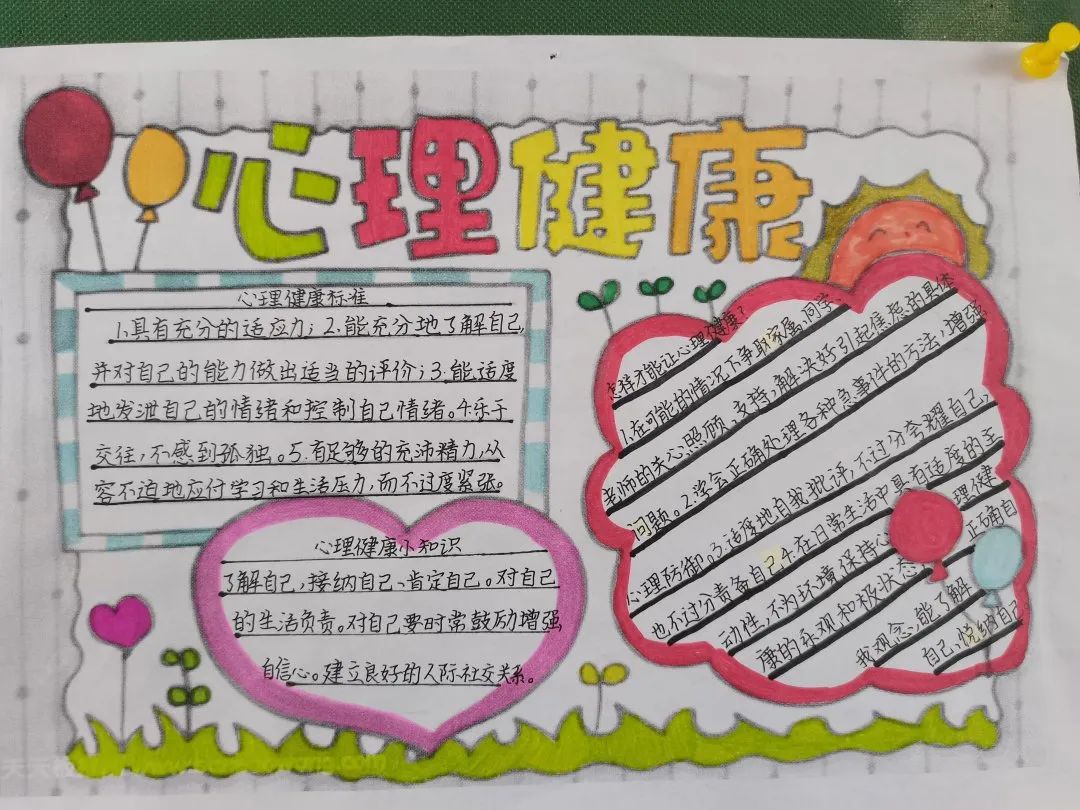 心理健康
心理健康标准
1.具有充分的适应力；2.能充分地了解自己，
并对自己的能力做出适当的评价；3.能适度
地发泄自己的情绪和控制自己情绪。4.乐于
交往，不感到孤独。5.有足够的充沛精力，从
容不迫地应付学习和生活压力，而不过度紧张。
心理健康小知识
了解自己，接纳自己、肯定自己。对自己
的生活负责。对自己要时常鼓励增强
自信心。建立良好的人际社交关系。
怎样才能让心理健康？
1.在可能的情况下争取家属、同学、
老师的关心照顾、支持，解决好引起焦虑的具体
问题。2.学会正确处理各种急事件的方法，增强
心理防御。3.适度地自我批评，不过分夸耀自己，
也不过分责备自己4.在日常生活中具有适度的主
动性，不为环境 保持心理健
康的乐观和积极状态 正确自
我观念，能了解
自己，悦纳自己